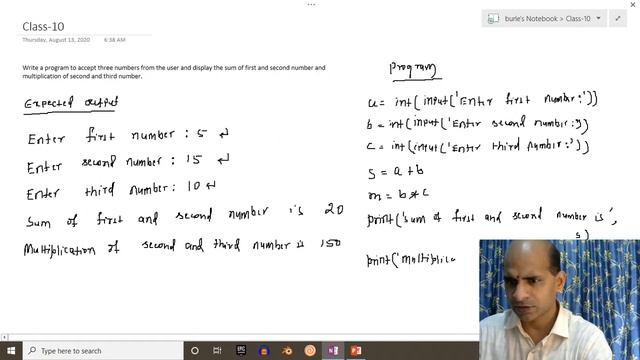 Class-10
Thursday, August 13, 2020 6:38 AM
burle's Notebook > Class-10
Write a program to accept three numbers from the user and display the sum of first and second number and
multiplication of second and third number.
Expected output
Enter first number : 5 ↵
Enter second number : 15 ↵
Enter third number : 10 ↵
Sum of first and second number is 20
Multiplication of second and third number is 150
Program
a = int(input('Enter first number:'))
b = int(input('Enter second number:'))
c = int(input('Enter third number:'))
S = a + b
m = b * c
print('Sum of first and second number is',
s)
print('Multiplica
Type here to search